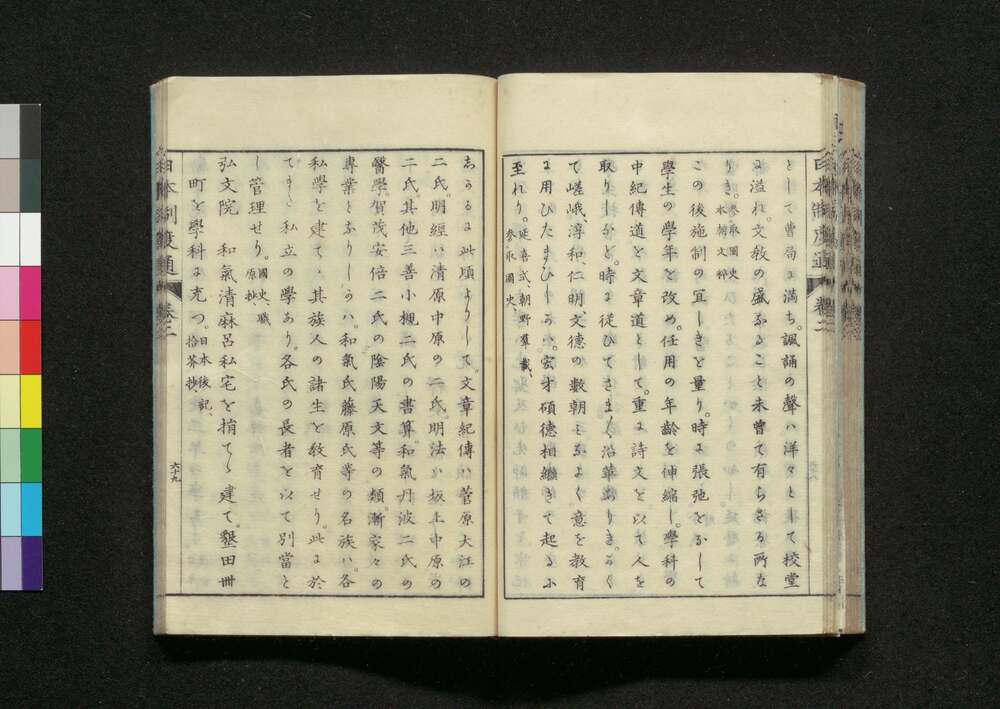 として曹局に満ち。諷誦の聲ハ洋々として校堂
に溢れ。文教の盛なること未曾て有らさる所な
りき。参取國史、本朝文粹
この後施制の宜しきを量り。時に張弛をなして
學生の學年を改め。任用の年齢を伸縮し。學科の
中紀傳道を文章道として。重に詩文を以て人を
取りしかど。時に従ひてさま〲沿革ありき。かく
て嵯峨、淳和仁明文德の數朝ミなよく。意を教育
に用ひたまひしかハ。宏才碩德相繼ぎて起るに
至れり。延喜式、朝野羣載、参取國史、
しかるに此頃よりして。文章紀傳ハ菅原大江の
二氏。明經ハ清原中原の二氏明法ハ坂上中原の
二氏其他三善小槻二氏の書算。和氣丹波二氏の
醫學。賀茂安倍二氏の陰陽天文等の類。漸家々の
専業となりしかハ。和氣氏藤原氏等の名族ハ。各
私學を建て、其族人の諸生を教育せり。此に於
てまた私立の學あり。各氏の長者を以て別當と
し管理せり。國史、職原抄、
弘文院 和氣清麻呂私宅を捐てゝ建て。墾田卌
町を學科に充つ。日本後記、拾芥抄
日本制度通 卷二
六十九